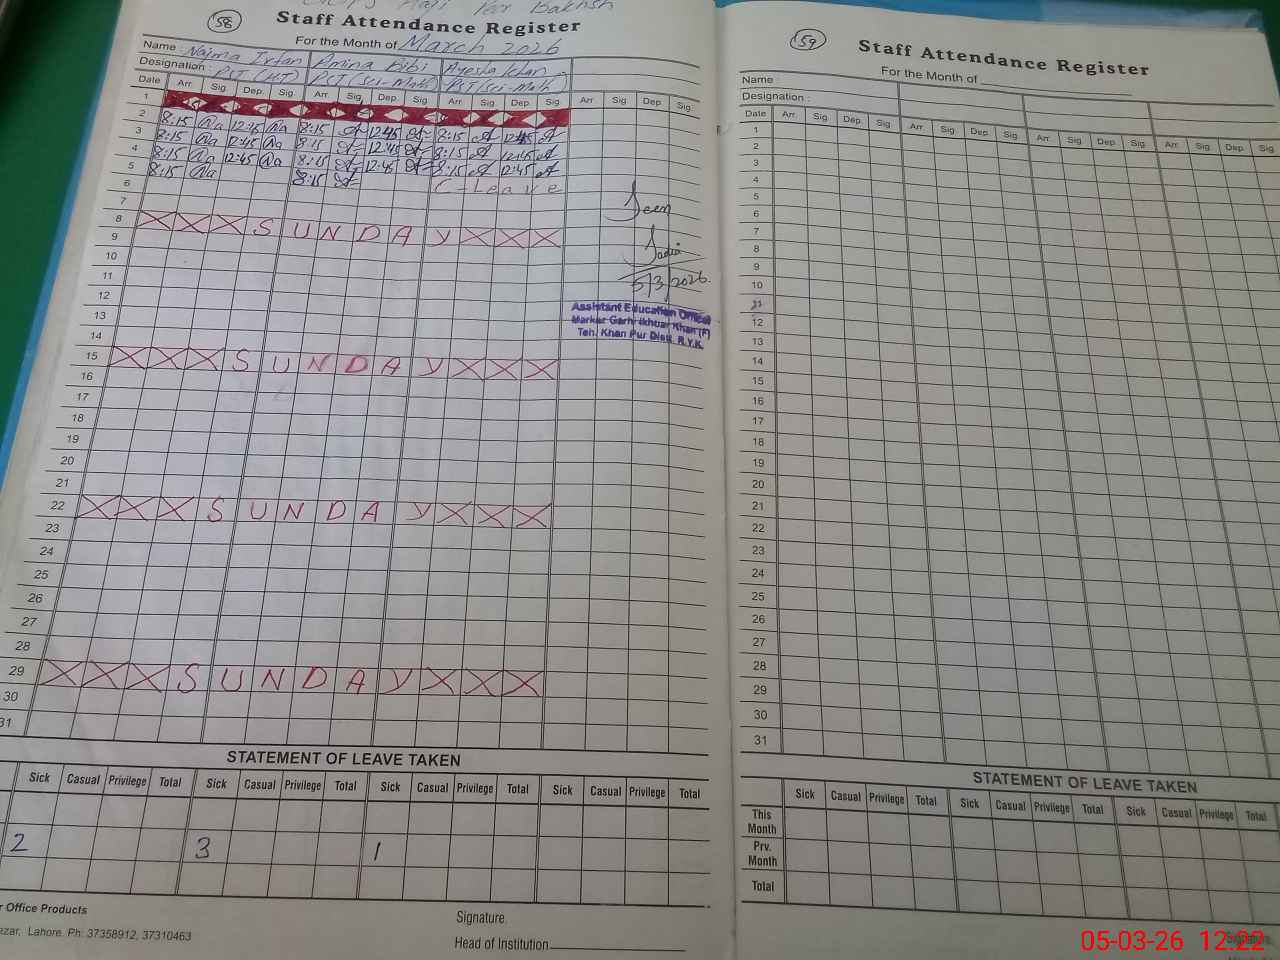 58
Staff Attendance Register
For the Month of March 2026
Name : Naima Irfan Amina Bibi Ayesha Khan
Designation : PST (HT) PST (Sci-Math) PST/Sci-Math
Date Arr. Sig. Dep. Sig. Arr. Sig. Dep. Sig. Arr. Sig. Dep. Sig. Arr Sig Dep Sig.
1
2 8:15 12:45 8:15 12:45 8:15 12:45
3 8:15 12:45 8:15 12:45 8:15 12:45
4 8:15 12:45 8:15 12:45 8:15 12:45
5 8:15 8:15 C-Leave
6
7
8 XXX SUNDAY XXX
9
10
11
12
13
14
15 XXX SUNDAY XXX
16
17
18
19
20
21
22 XXX SUNDAY XXX
23
24
25
26
27
28
29 XXX SUNDAY XXX
30
31
Seen
Sadia
5/3/2026.
Assistant Education Officer
Markaz Garhi Ikhtiar Khan (F)
Teh. Khan Pur Distt. R.Y.K.
STATEMENT OF LEAVE TAKEN
Sick Casual Privilege Total Sick Casual Privilege Total Sick Casual Privilege Total Sick Casual Privilege Total
2 3 1
Office Products
Lahore. Ph: 37358912, 37310463
Signature.
Head of Institution
59
Staff Attendance Register
For the Month of
Name :
Designation :
Date Arr. Sig. Dep. Sig. Arr. Sig. Dep. Sig. Arr. Sig. Dep. Sig. Arr. Sig. Dep. Sig.
1
2
3
4
5
6
7
8
9
10
11
12
13
14
15
16
17
18
19
20
21
22
23
24
25
26
27
28
29
30
31
STATEMENT OF LEAVE TAKEN
Sick Casual Privilege Total Sick Casual Privilege Total Sick Casual Privilege Total
This Month
Prv. Month
Total
Signature.
05-03-26 12:22